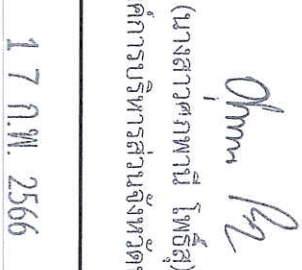 (นางสาวศุภพานี โพธิ์สุ)
ค์การบริหารส่วนจังหวัด
1 7 ก.พ. 2566